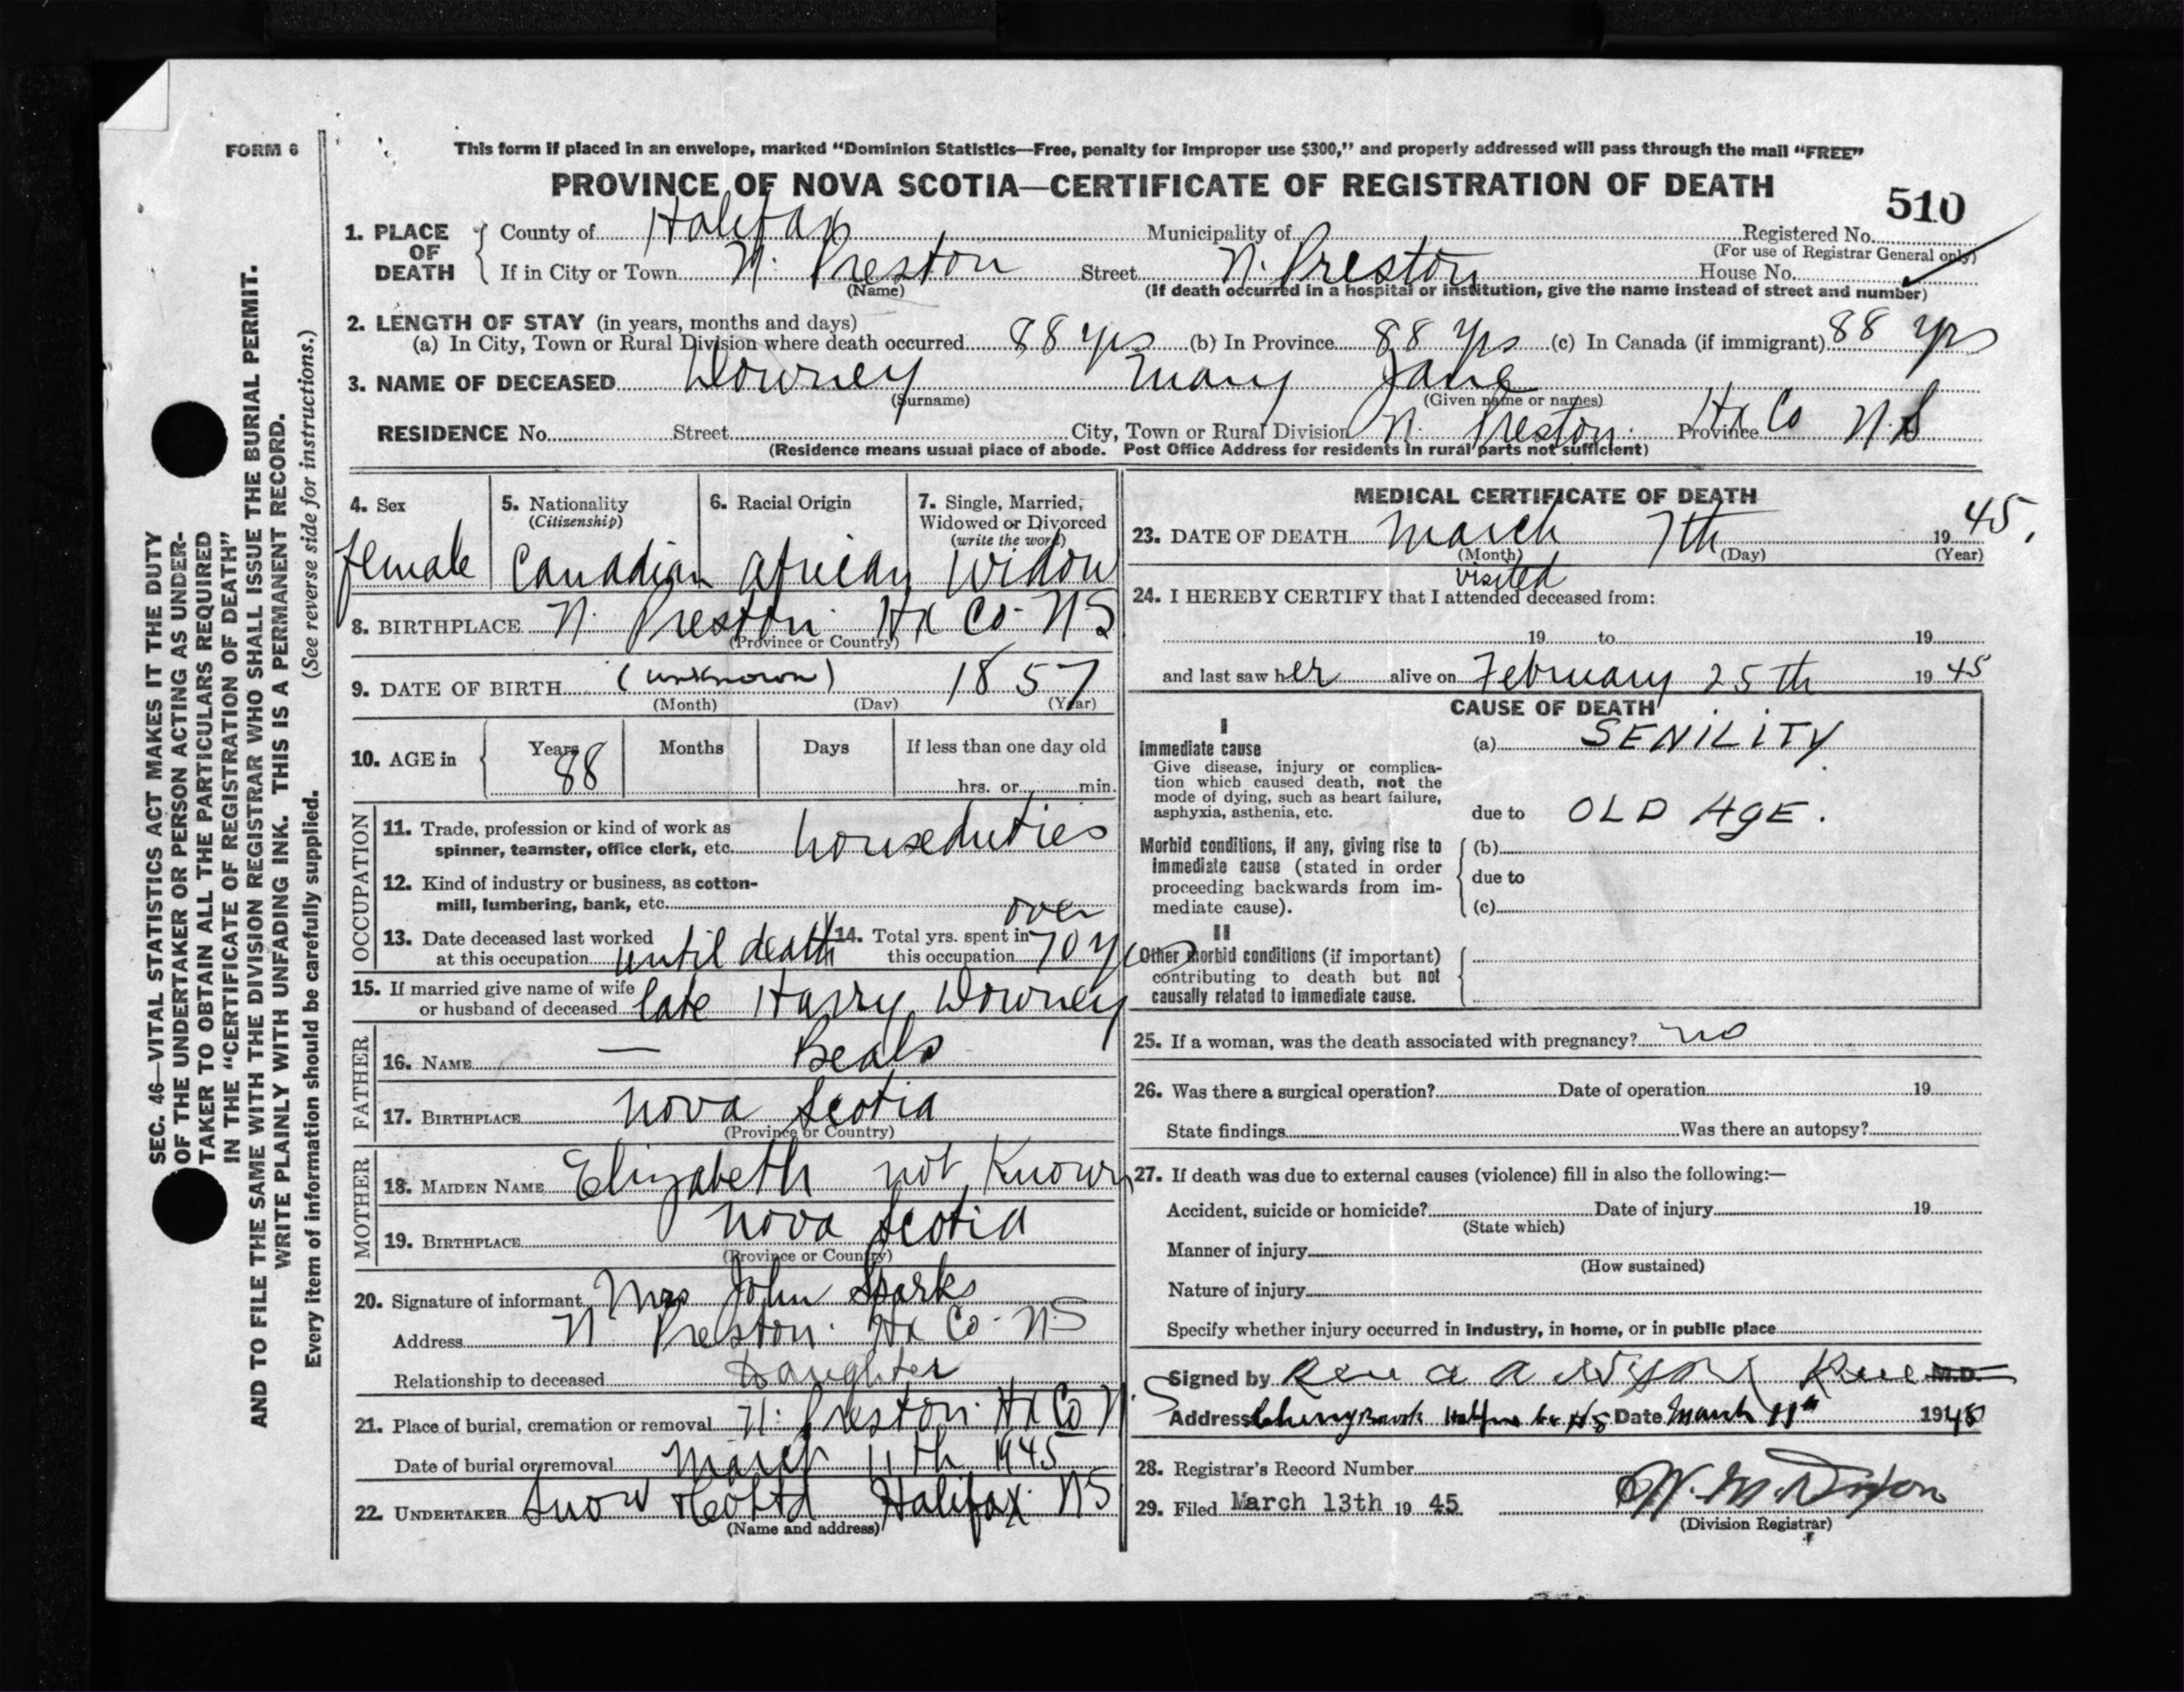 FORM 6
This form if placed in an envelope, marked "Dominion Statistics—Free, penalty for improper use $300," and properly addressed will pass through the mail "FREE"
PROVINCE OF NOVA SCOTIA—CERTIFICATE OF REGISTRATION OF DEATH
510
1. PLACE OF DEATH
County of Halifax Municipality of Registered No.
(For use of Registrar General only)
If in City or Town N. Preston Street N. Preston House No.
(Name) (If death occurred in a hospital or institution, give the name instead of street and number)
2. LENGTH OF STAY (in years, months and days)
(a) In City, Town or Rural Division where death occurred 88 yrs (b) In Province 88 yrs (c) In Canada (if immigrant) 88 yrs
3. NAME OF DECEASED Downey Mary Jane
(Surname) (Given name or names)
RESIDENCE No. Street City, Town or Rural Division N. Preston Hx Co Province N.S
(Residence means usual place of abode. Post Office Address for residents in rural parts not sufficient)
4. Sex
female
5. Nationality
(Citizenship)
Canadian
6. Racial Origin
African
7. Single, Married, Widowed or Divorced
(write the word)
Widow
8. BIRTHPLACE N. Preston Hx Co NS
(Province or Country)
9. DATE OF BIRTH (unknown) 1857
(Month) (Day) (Year)
10. AGE in Years 88 Months Days If less than one day old
hrs. or min.
OCCUPATION
11. Trade, profession or kind of work as
spinner, teamster, office clerk, etc. houseduties
12. Kind of industry or business, as cotton-
mill, lumbering, bank, etc.
13. Date deceased last worked
at this occupation until death
14. Total yrs. spent in
this occupation over 70 yrs
15. If married give name of wife
or husband of deceased late Harry Downey
FATHER
16. NAME — Beals
17. BIRTHPLACE Nova Scotia
(Province or Country)
MOTHER
18. MAIDEN NAME Elizabeth not Known
19. BIRTHPLACE Nova Scotia
(Province or Country)
20. Signature of informant Mrs John Sparks
Address N. Preston Hx Co NS
Relationship to deceased Daughter
21. Place of burial, cremation or removal N. Preston Hx Co N.S
Date of burial or removal March 11th 1945
22. UNDERTAKER Snow & Co Ltd Halifax NS
(Name and address)
MEDICAL CERTIFICATE OF DEATH
23. DATE OF DEATH March 7th 19 45.
(Month) (Day) (Year)
visited
24. I HEREBY CERTIFY that I attended deceased from:
19 to 19
and last saw her alive on February 25th 19 45
CAUSE OF DEATH
I
Immediate cause
Give disease, injury or complica-
tion which caused death, not the
mode of dying, such as heart failure,
asphyxia, asthenia, etc.
(a) SENILITY
due to OLD AGE.
Morbid conditions, if any, giving rise to
immediate cause (stated in order
proceeding backwards from im-
mediate cause).
(b)
due to
(c)
II
Other morbid conditions (if important)
contributing to death but not
causally related to immediate cause.
25. If a woman, was the death associated with pregnancy? no
26. Was there a surgical operation? Date of operation 19
State findings Was there an autopsy?
27. If death was due to external causes (violence) fill in also the following:—
Accident, suicide or homicide? Date of injury 19
(State which)
Manner of injury
(How sustained)
Nature of injury
Specify whether injury occurred in industry, in home, or in public place
Signed by Rev A A M.D.
Address Cherry Brook Halifax Co NS Date March 11th 1945
28. Registrar's Record Number
29. Filed March 13th 19 45
W. M. Dixon
(Division Registrar)
SEC. 46—VITAL STATISTICS ACT MAKES IT THE DUTY
OF THE UNDERTAKER OR PERSON ACTING AS UNDER-
TAKER TO OBTAIN ALL THE PARTICULARS REQUIRED
IN THE "CERTIFICATE OF REGISTRATION OF DEATH"
AND TO FILE THE SAME WITH THE DIVISION REGISTRAR WHO SHALL ISSUE THE BURIAL PERMIT.
WRITE PLAINLY WITH UNFADING INK. THIS IS A PERMANENT RECORD.
Every item of information should be carefully supplied. (See reverse side for instructions.)